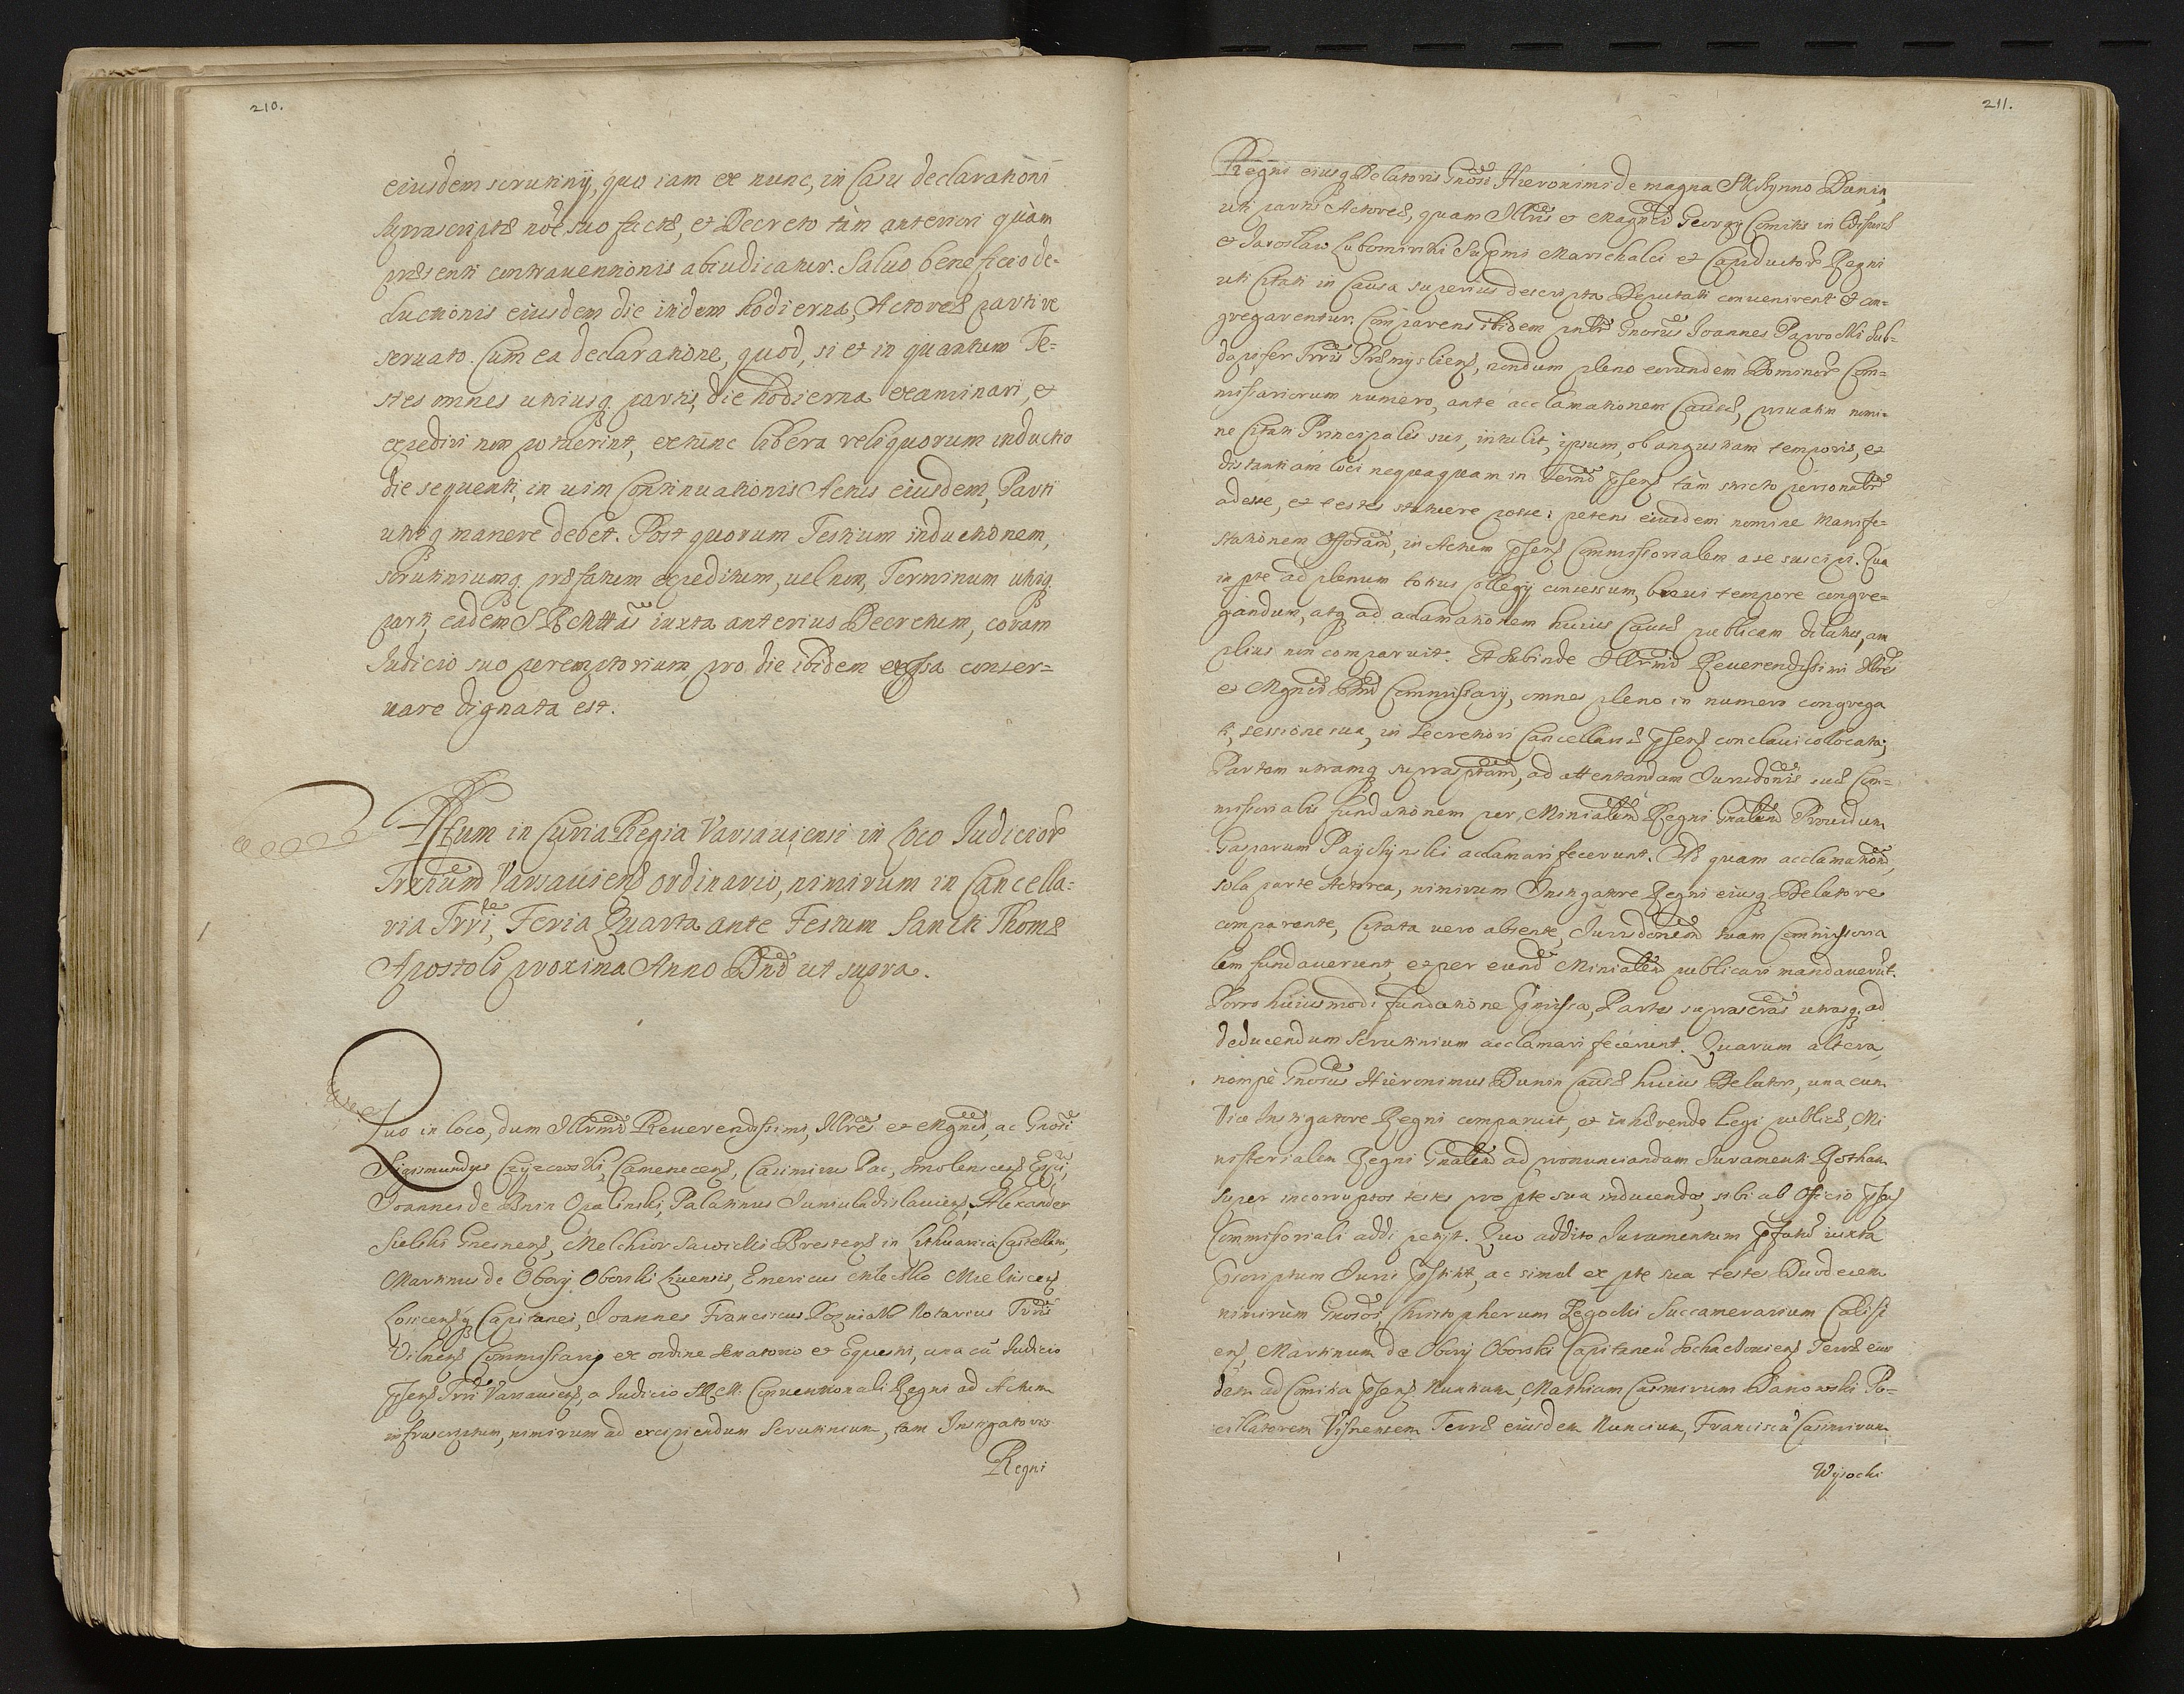 210.
eiusdem scrutinij, quo iam ex nunc, in Casu declarationi
suprascriptæ nõe suo factæ, et Decreto tàm anteriori quàm
præsenti contrauentionis abiudicatur. Saluo beneficio de-
ductionis eiusdem die itidem hodierna, Actoreæ parti re
seruato. Cum ea declaratione, quod, si et in quantum Te-
stes omnes utriusq. partis, die hodierna examinari, et
expediri non potuerint, extunc libera reliquorum inductio
die sequenti, in uim Continuationis Actus eiusdem, Parti
utriq manere debet. Post quorum Testium inductionem,
scrutiniumq præfatum expeditum, uel non, Terminum utriq.
parti, eadem S. R. Mttas iuxta anterius Decretum, coram
Iudicio suo peremptorium, pro die ibidem exp̃ssa conser-
uare dignata est.
Actum in Curia Regia Varsauiensi in Loco Iudicior
Trrium Varsauiens ordinario, nimirum in Cancella-
ria Trri, Feria Quarta ante Festum Sancti Thomæ
Apostoli proxima Anno Dni ut supra.
Quo in loco, dum Illrmi Reuerendissimi, Illres et Mgnci, ac Gnosi
Sigismundus Czyzowski, Camenecens, Casimirus Pac, Smolenscens Eppi,
Joannes de Bnin Opalinski, Palatinus Iuniuladislauiens, Alexander
Sielski Gnesnens, Melchior Sawicki Brestens in Lithuania Castellani,
Martinus de Obory Oborski Liuensis, Emericus Mleczko Mielnicens
Losicensq Capitanei, Joannes Franciscus Pozniak Notarius Trris
Vilnens Commissarij ex ordine Senatorio et Equestri, una cũ Iudicio
p̃sens Trri Varsauiens, a Iudicio S. R. M. Conuentionali Regni ad Actum
infrascriptum, nimirum ad excipiendum Scrutinium, tam Instigatoris
Regni
211.
Regni eiusq Delatoris Gnosi Hieronimi de magna Skrzynno Dunin,
uti partis Actoreæ, quam Illris et Magnci Georgij Comitis in Wisnicz
et Jaroslaw Lubomirski Supmi Marschalci et Campiductor Regni
uti Citati in Causa superius descripta Deputati conuenirent et con-
gregarentur. Comparens ibidem pntr Gnosus Joannes Parwocki Sub-
dapifer Trris Præmysliens, nondum pleno eorundem Dominor Com-
missariorum numero, ante acclamationem Causæ, priuatim nomi-
ne Citati Principalis sui, intulit, ipsum, ob angustiam temporis, et
distantiam loci nequaquam in Termo p̃sens tàm stricto personalr
adesse, et testes statuere posse: petens eiusdem nomine Manife-
stationem Offotam, in Actum p̃sens Commissorialem a se suscipi. Qua
in pte ad plenum totius Collegij consessum, breui tempore congre-
gandum, atq ad acclamationem huius Causæ publicam dilatus, am
plius non comparuit. Et subinde Illrmi Reuerendissimi Illres
et Mgnci Dni Commissarij, omnes pleno in numero congrega
ti, sessione sua, in secretiori Cancellariæ p̃sens conclaui collocata,
Partem utramq suprasptam, ad attentandam Iurisdonis suæ Com-
missorialis fundationem per, Minialem Regni Gnalem Prouidum
Gasparum Paychynski acclamari fecerunt. Ad quam acclamaonem,
sola parte Actorea, nimirum Instigatore Regni eiusq Delatore
comparente, Citata uero absente, Iurisdonem suam Commissoria
lem fundauerunt, et per eund Minialem publicari mandauerũt.
Porro huiusmodi fundatione p̃missa, Partes suprascras utrasq. ad
deducendum Scrutinium acclamari fecerunt. Quarum altera,
nempè Gnosus Hieronimus Dunin Causæ huius Delator, una cum
Vice Instigatore Regni comparuit, et inhærendo Legi publicæ, Mi
nisterialem Regni Gnalem ad pronunciandam Iuramenti Rotham
super incorruptos testes pro pte sua inducendos, sibi ab Officio p̃sens
Commissoriali addi petijt. Quo addito Iuramentum p̃fatũ iuxta
p̃scriptum Iuris p̃stitit, ac simul ex pte sua testes Duodecem
nimirùm Gnosos, Christopherum Zegocki Succamerarium Calisi
ens, Martinum de Obory Oborski Capitaneũ Sochaczouiens Terræ eius
dem ad Comitia p̃sens Nuntium, Mathiam Casimirum Danowski Po-
cillatorem Visnensem Terræ eiusdem Nuncium, Franciscũ Casimirum
Wysocki